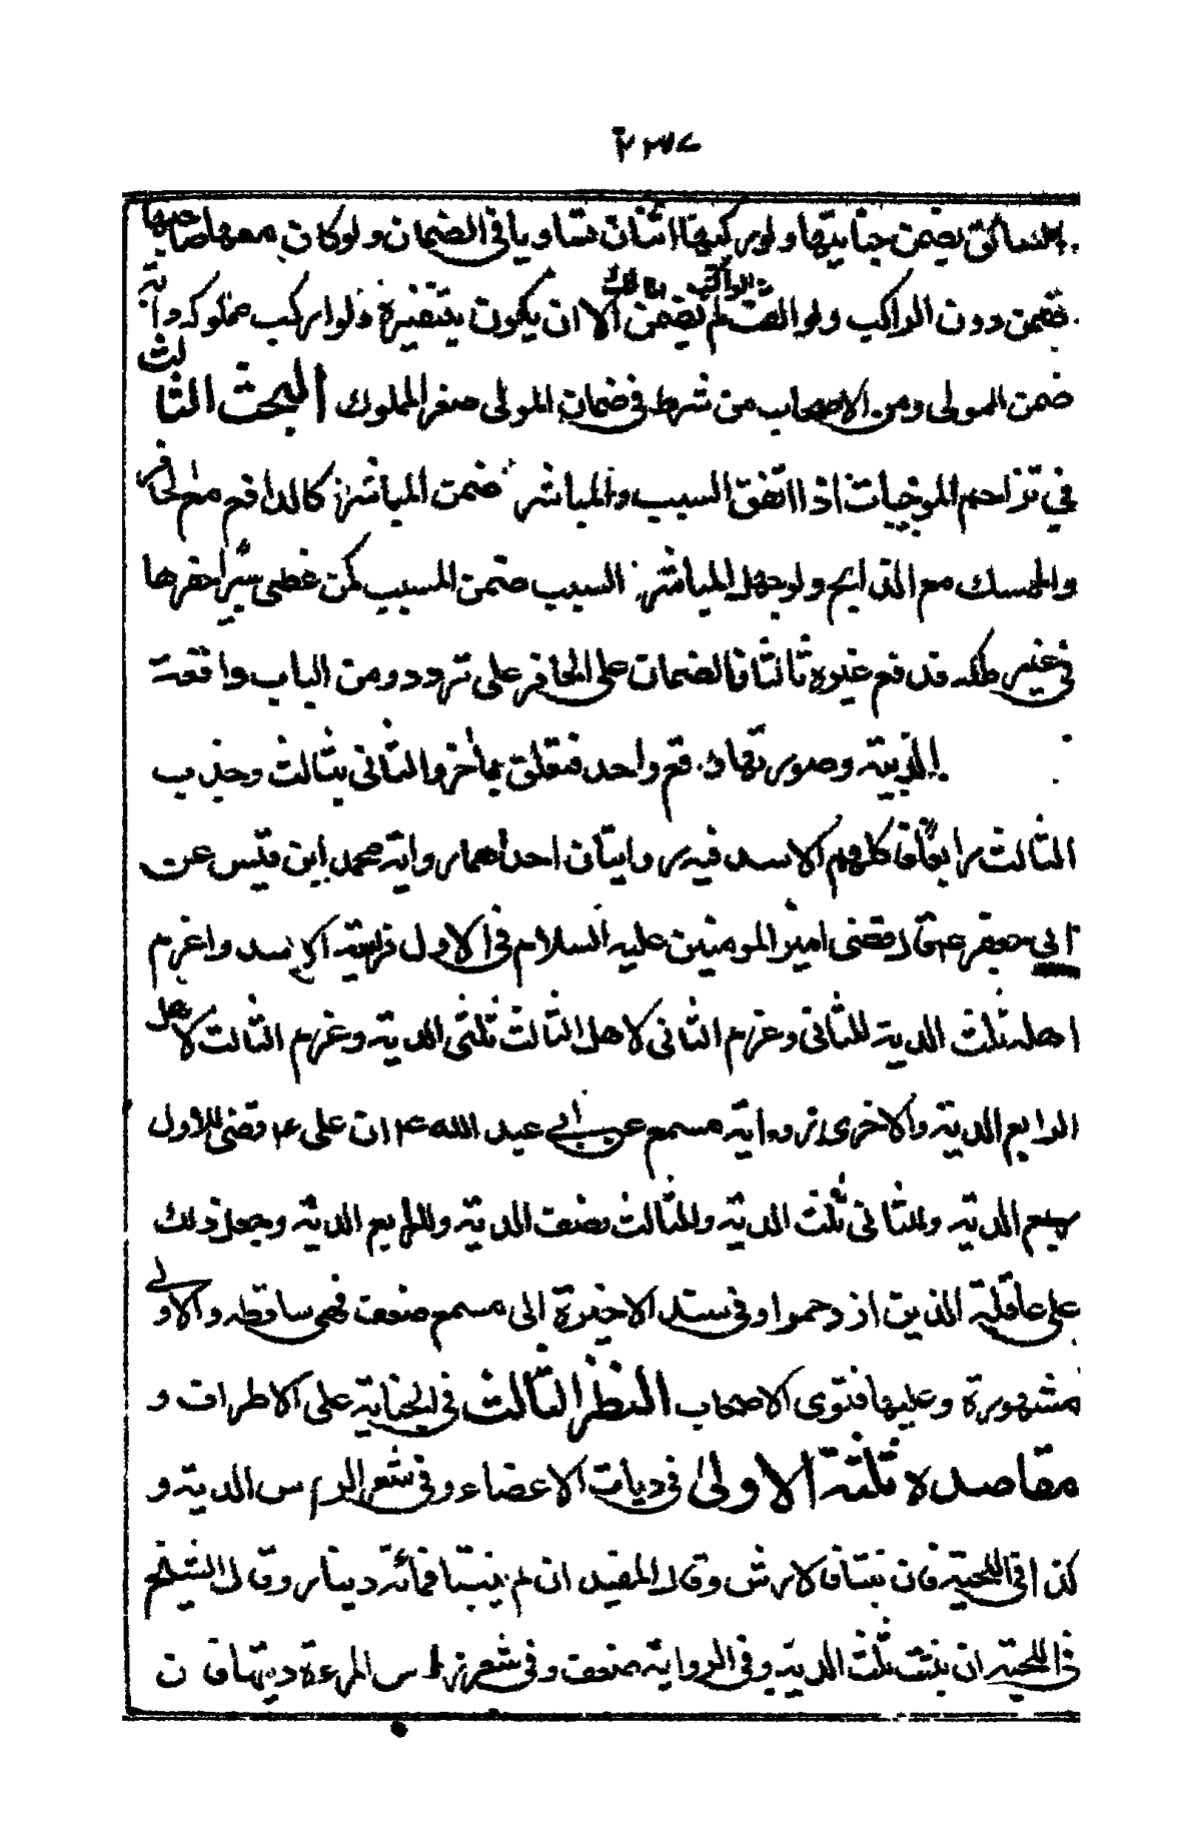 السائق يضمن جنايتها ولو ركبها اثنان تساويا في الضمان ولو كان معها صاحبها
فضمن دون الراكب ولو القت الراكب لم يضمن المالك الا ان يكون بتنفيره ولو اركب مملوكه دابته
ضمن المولى ومن الاصحاب من شرط في ضمان المولى صغر المملوك البحث الثالث
في تزاحم الموجبات اذا اتفق السبب والمباشر ضمن المباشر كالدافع مع الحافر
والممسك مع الذابح ولو جهل المباشر السبب ضمن المسبب كمن غطى بئرا حفرها
في غير ملكه فدفع غيره ثالثا فالضمان على الحافر على تردد ومن الباب واقعة
الزبية وصورتها وقع واحد فتعلق بآخر والثاني بثالث وجذب
الثالث رابعا فاكلهم الاسد فيه روايتان احداهما رواية محمد ابن قيس عن
ابي جعفر ع قال قضى امير المومنين عليه السلام في الاول فريسة الاسد واغرم
اهله ثلث الدية للثاني وغرم الثاني لاهل الثالث ثلثي الدية وغرم الثالث لاهل
الرابع الدية والاخرى رواية مسمع عن ابي عبد الله ع ان علي ع قضى للاول
ربع الدية وللثاني ثلث الدية وللثالث نصف الدية وللرابع الدية وجعل ذلك
على عاقلة الذين ازدحموا وفي سند الاخيرة الى مسمع ضعف فهي ساقطه والاولى
مشهورة وعليها فتوى الاصحاب النظر الثالث في الجناية على الاطراف و
مقاصده ثلثة الاولى في ديات الاعضاء وفي شعر الراس الدية و
كذا في اللحية فان نبتا فالارش وقال المفيد ان لم ينبتا فمائة دينار وقال الشيخ
في اللحية ان نبتت ثلث الدية وفي الرواية ضعف وفي شعر راس المرءة ديتها فان